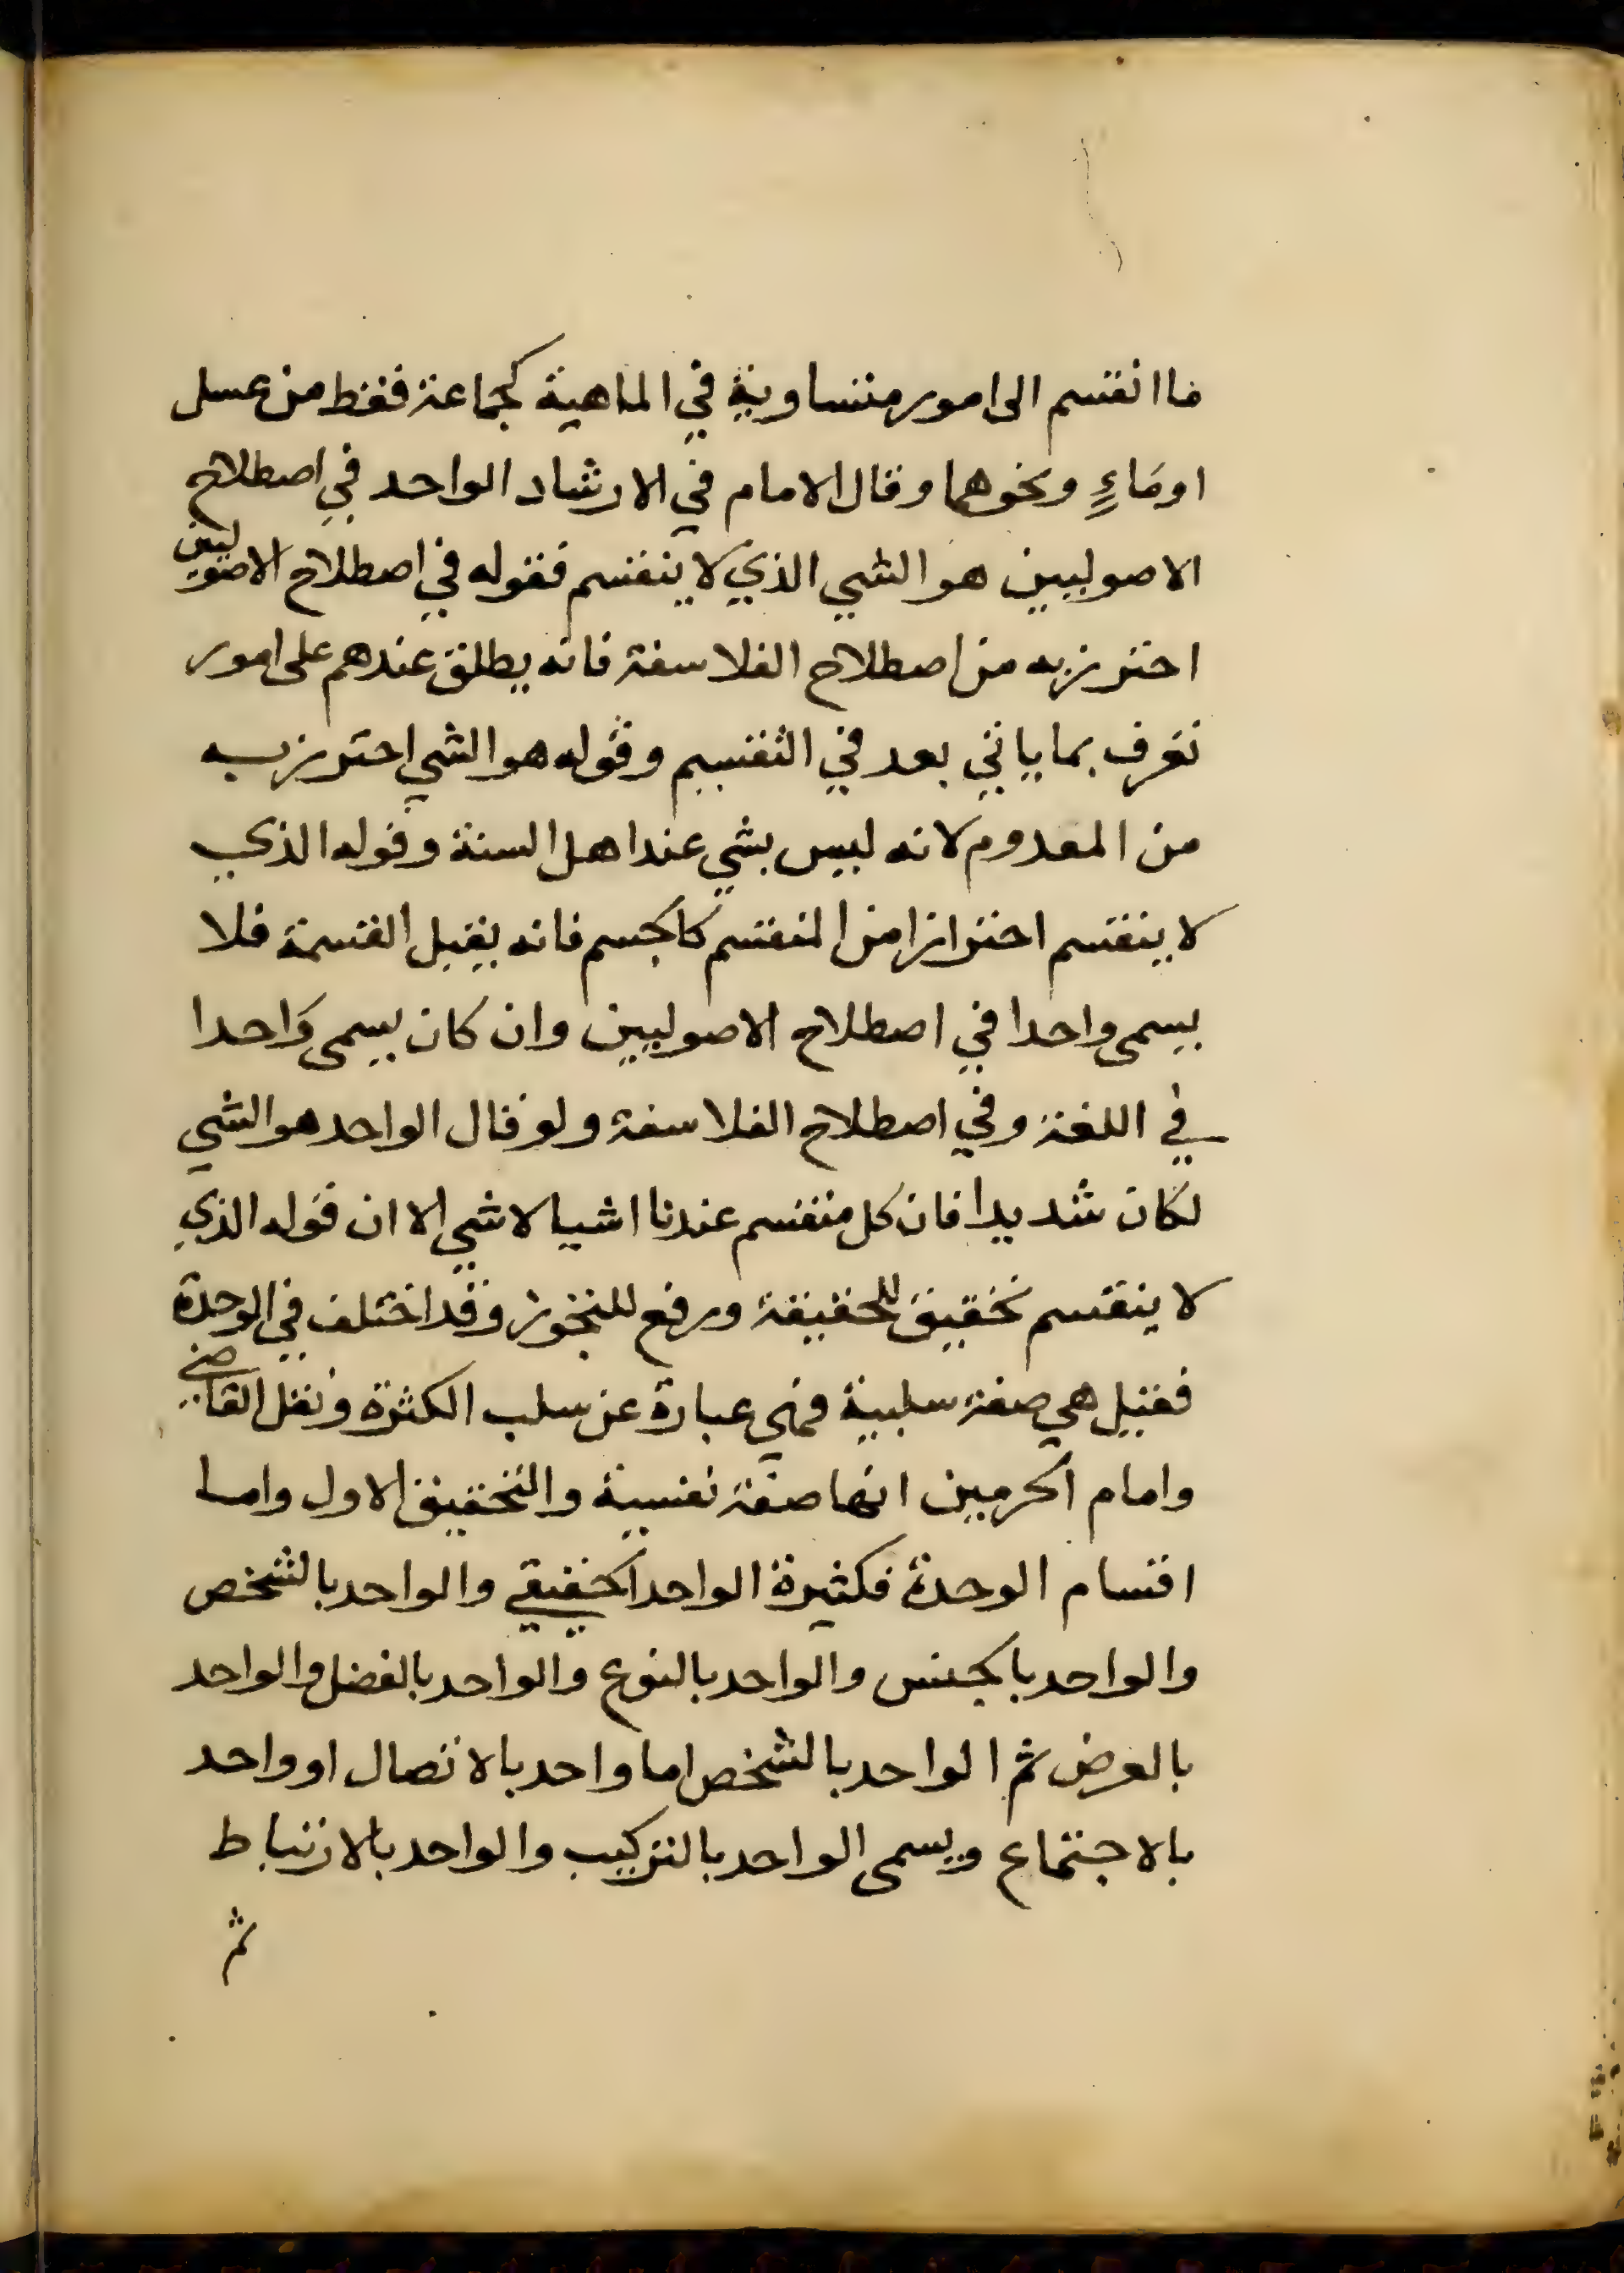 ما انقسم الى امور متساوية في الماهية كجماعة فقط من عسل
او ماءٍ ونحوهما وقال الامام في الارشاد الواحد في اصطلاح
الاصوليين هو الشي الذي لا ينقسم فقوله في اصطلاح الاصوليين
احترز به من اصطلاح الفلاسفة فانه يطلق عندهم على امور
تعرف بما ياتي بعد في التقسيم وقوله هو الشي احترز به
من المعدوم لانه ليس بشي عند اهل السنة وقوله الذي
لا ينقسم احترازا من المنقسم كالجسم فانه يقبل القسمة فلا
يسمى واحدا في اصطلاح الاصوليين وان كان يسمى واحدا
في اللغة وفي اصطلاح الفلاسفة ولو قال الواحد هو الشي
لكان شديدا فان كل منقسم عندنا اشيا لا شي الا ان قوله الذي
لا ينقسم تحقيق للحقيقة ورفع للتجوز وقد اختلف في الوحدة
فقيل هي صفة سلبية فهي عبارة عن سلب الكثرة ونقل القاضي
وامام الحرمين انها صفة نفسية والتحقيق الاول واما
اقسام الوحدة فكثيرة الواحد الحقيقي والواحد بالشخص
والواحد بالجنس والواحد بالنوع والواحد بالفضل والواحد
بالعرض ثم الواحد بالشخص اما واحد بالاتصال او واحد
بالاجتماع ويسمى الواحد بالتركيب والواحد بالارتباط
ثم